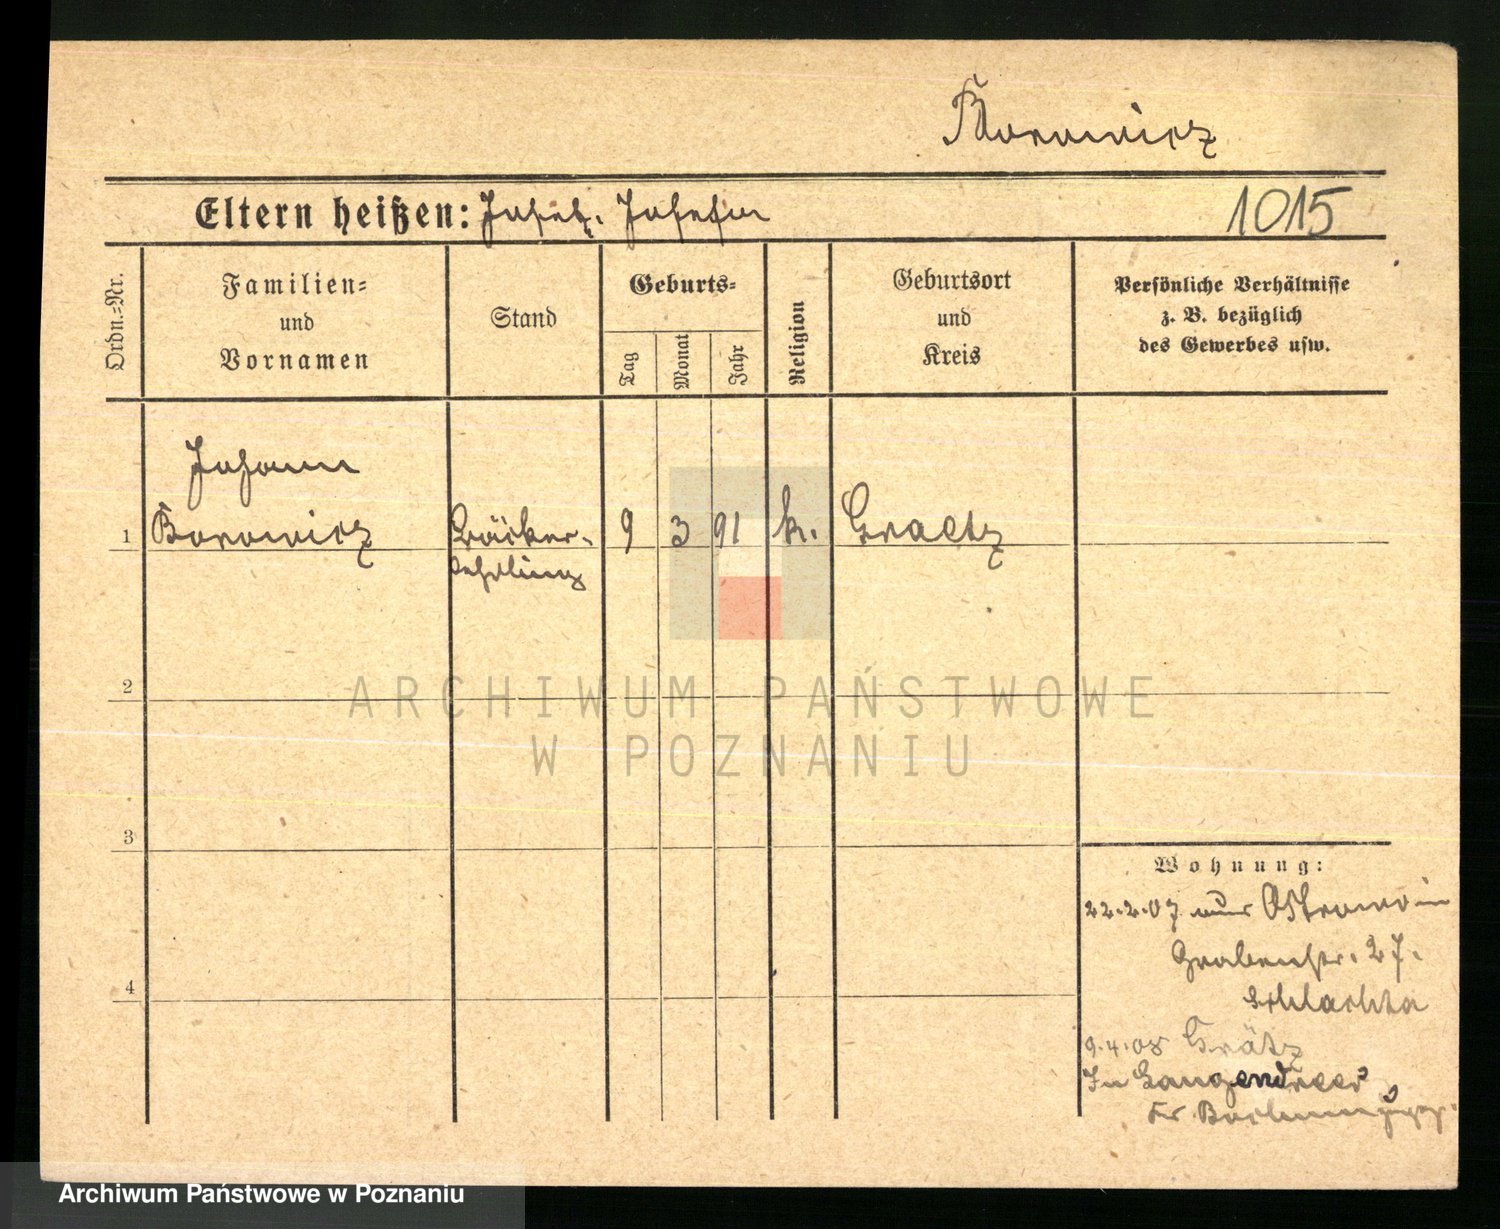 Borowicz
Eltern heißen: Josef. Josefa
1015
Ordn.-Nr.
Familien-
und
Vornamen
Stand
Geburts-
Tag
Monat
Jahr
Religion
Geburtsort
und
Kreis
Persönliche Verhältnisse
z. B. bezüglich
des Gewerbes usw.
Johann
1 Borowicz Bäcker- 9 3 91 k. Graetz
lehrling
2
ARCHIWUM PAŃSTWOWE
W POZNANIU
3
Wohnung:
22.2.07 aus Ostrowo in
Grabenstr. 27.
4
9.4.08 Grätz
In Langendreer
Kr. Bochum
Archiwum Państwowe w Poznaniu